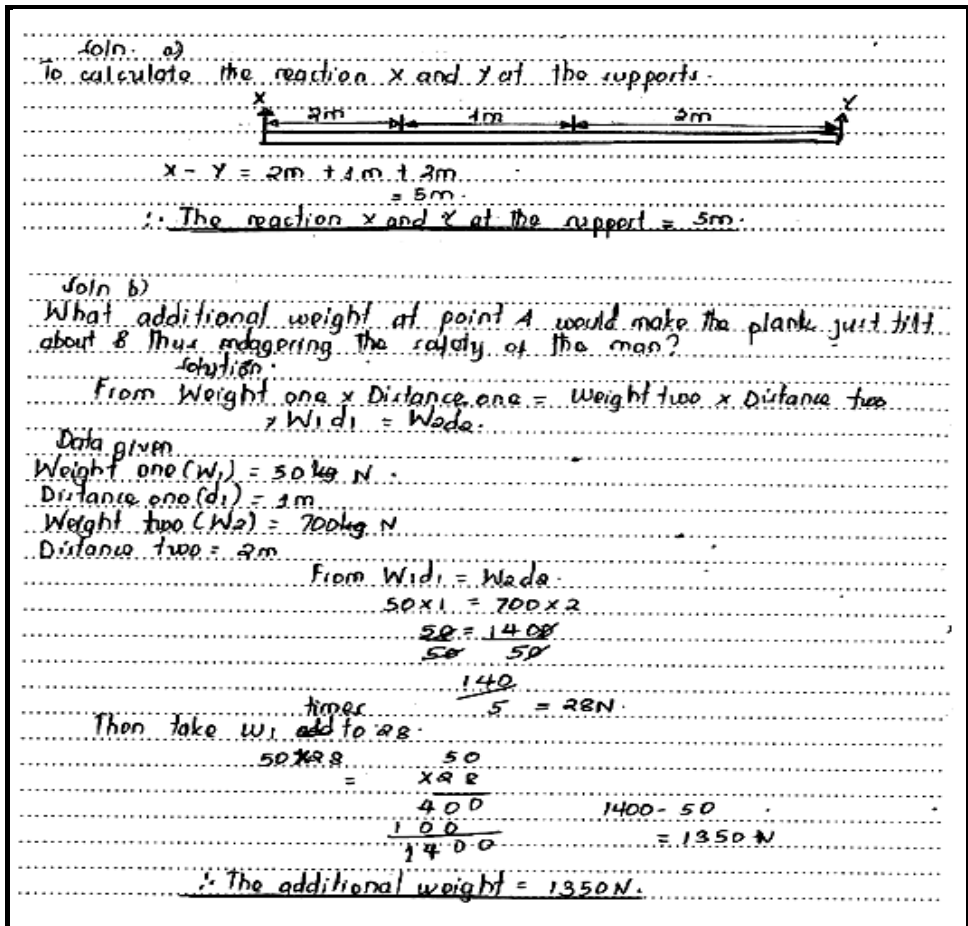 Soln. a)
To calculate the reaction X and Y at the supports.
X Y
2m 1m 2m
X - Y = 2m + 1m + 2m
= 5m.
∴ The reaction X and Y at the support = 5m.
Soln b)
What additional weight at point A would make the plank just tilt
about B thus endagering the safety of the man?
Solution.
From Weight one x Distance one = Weight two x Distance two
W1d1 = W2d2.
Data given
Weight one (W1) = 50 kg N.
Distance one (d1) = 1m
Weight two (W2) = 700kg N
Distance two = 2m
From W1d1 = W2d2.
50 x 1 = 700 x 2
50 = 1400
50 50
140
5 = 28N.
times
Then take W1 add to 28.
50 x 28 50
= x 28
400 1400 - 50
100 = 1350 N
1400
∴ The additional weight = 1350N.